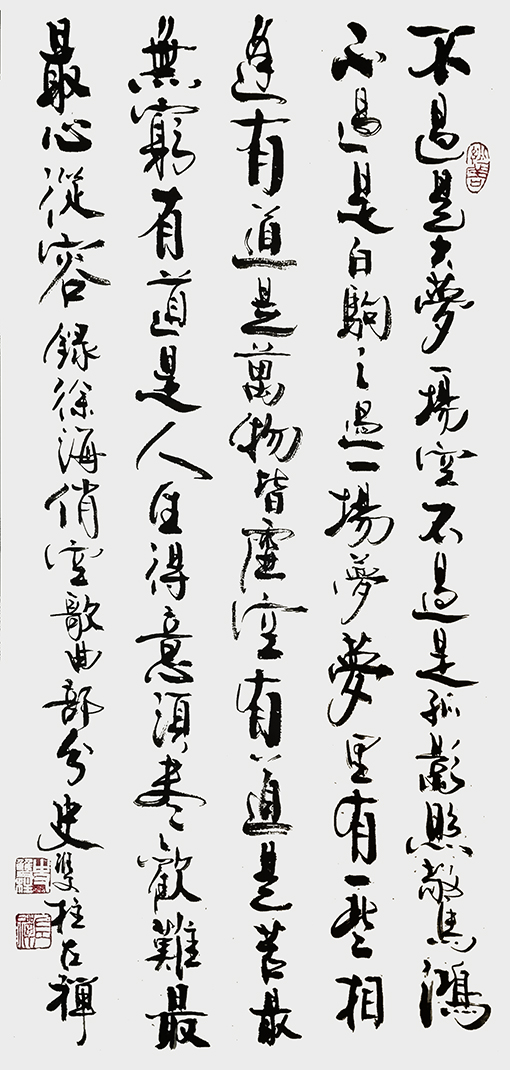 妙善
不過是大夢一場空不過是孤影照驚鴻
不過是白駒之過一場夢夢里有一些相
逢有道是萬物皆虛空有道是苦最
無窮有道是人生得意須盡歡難最
最心從容錄徐海俏空歌曲部分史雙柱禪